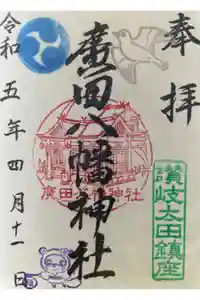 奉拝
廣田八幡神社
令和五年四月十一日
廣田八幡神社
讃岐太田鎮座